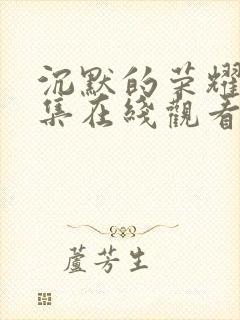 沉默的荣耀
集在綫觀看
蘆芳生